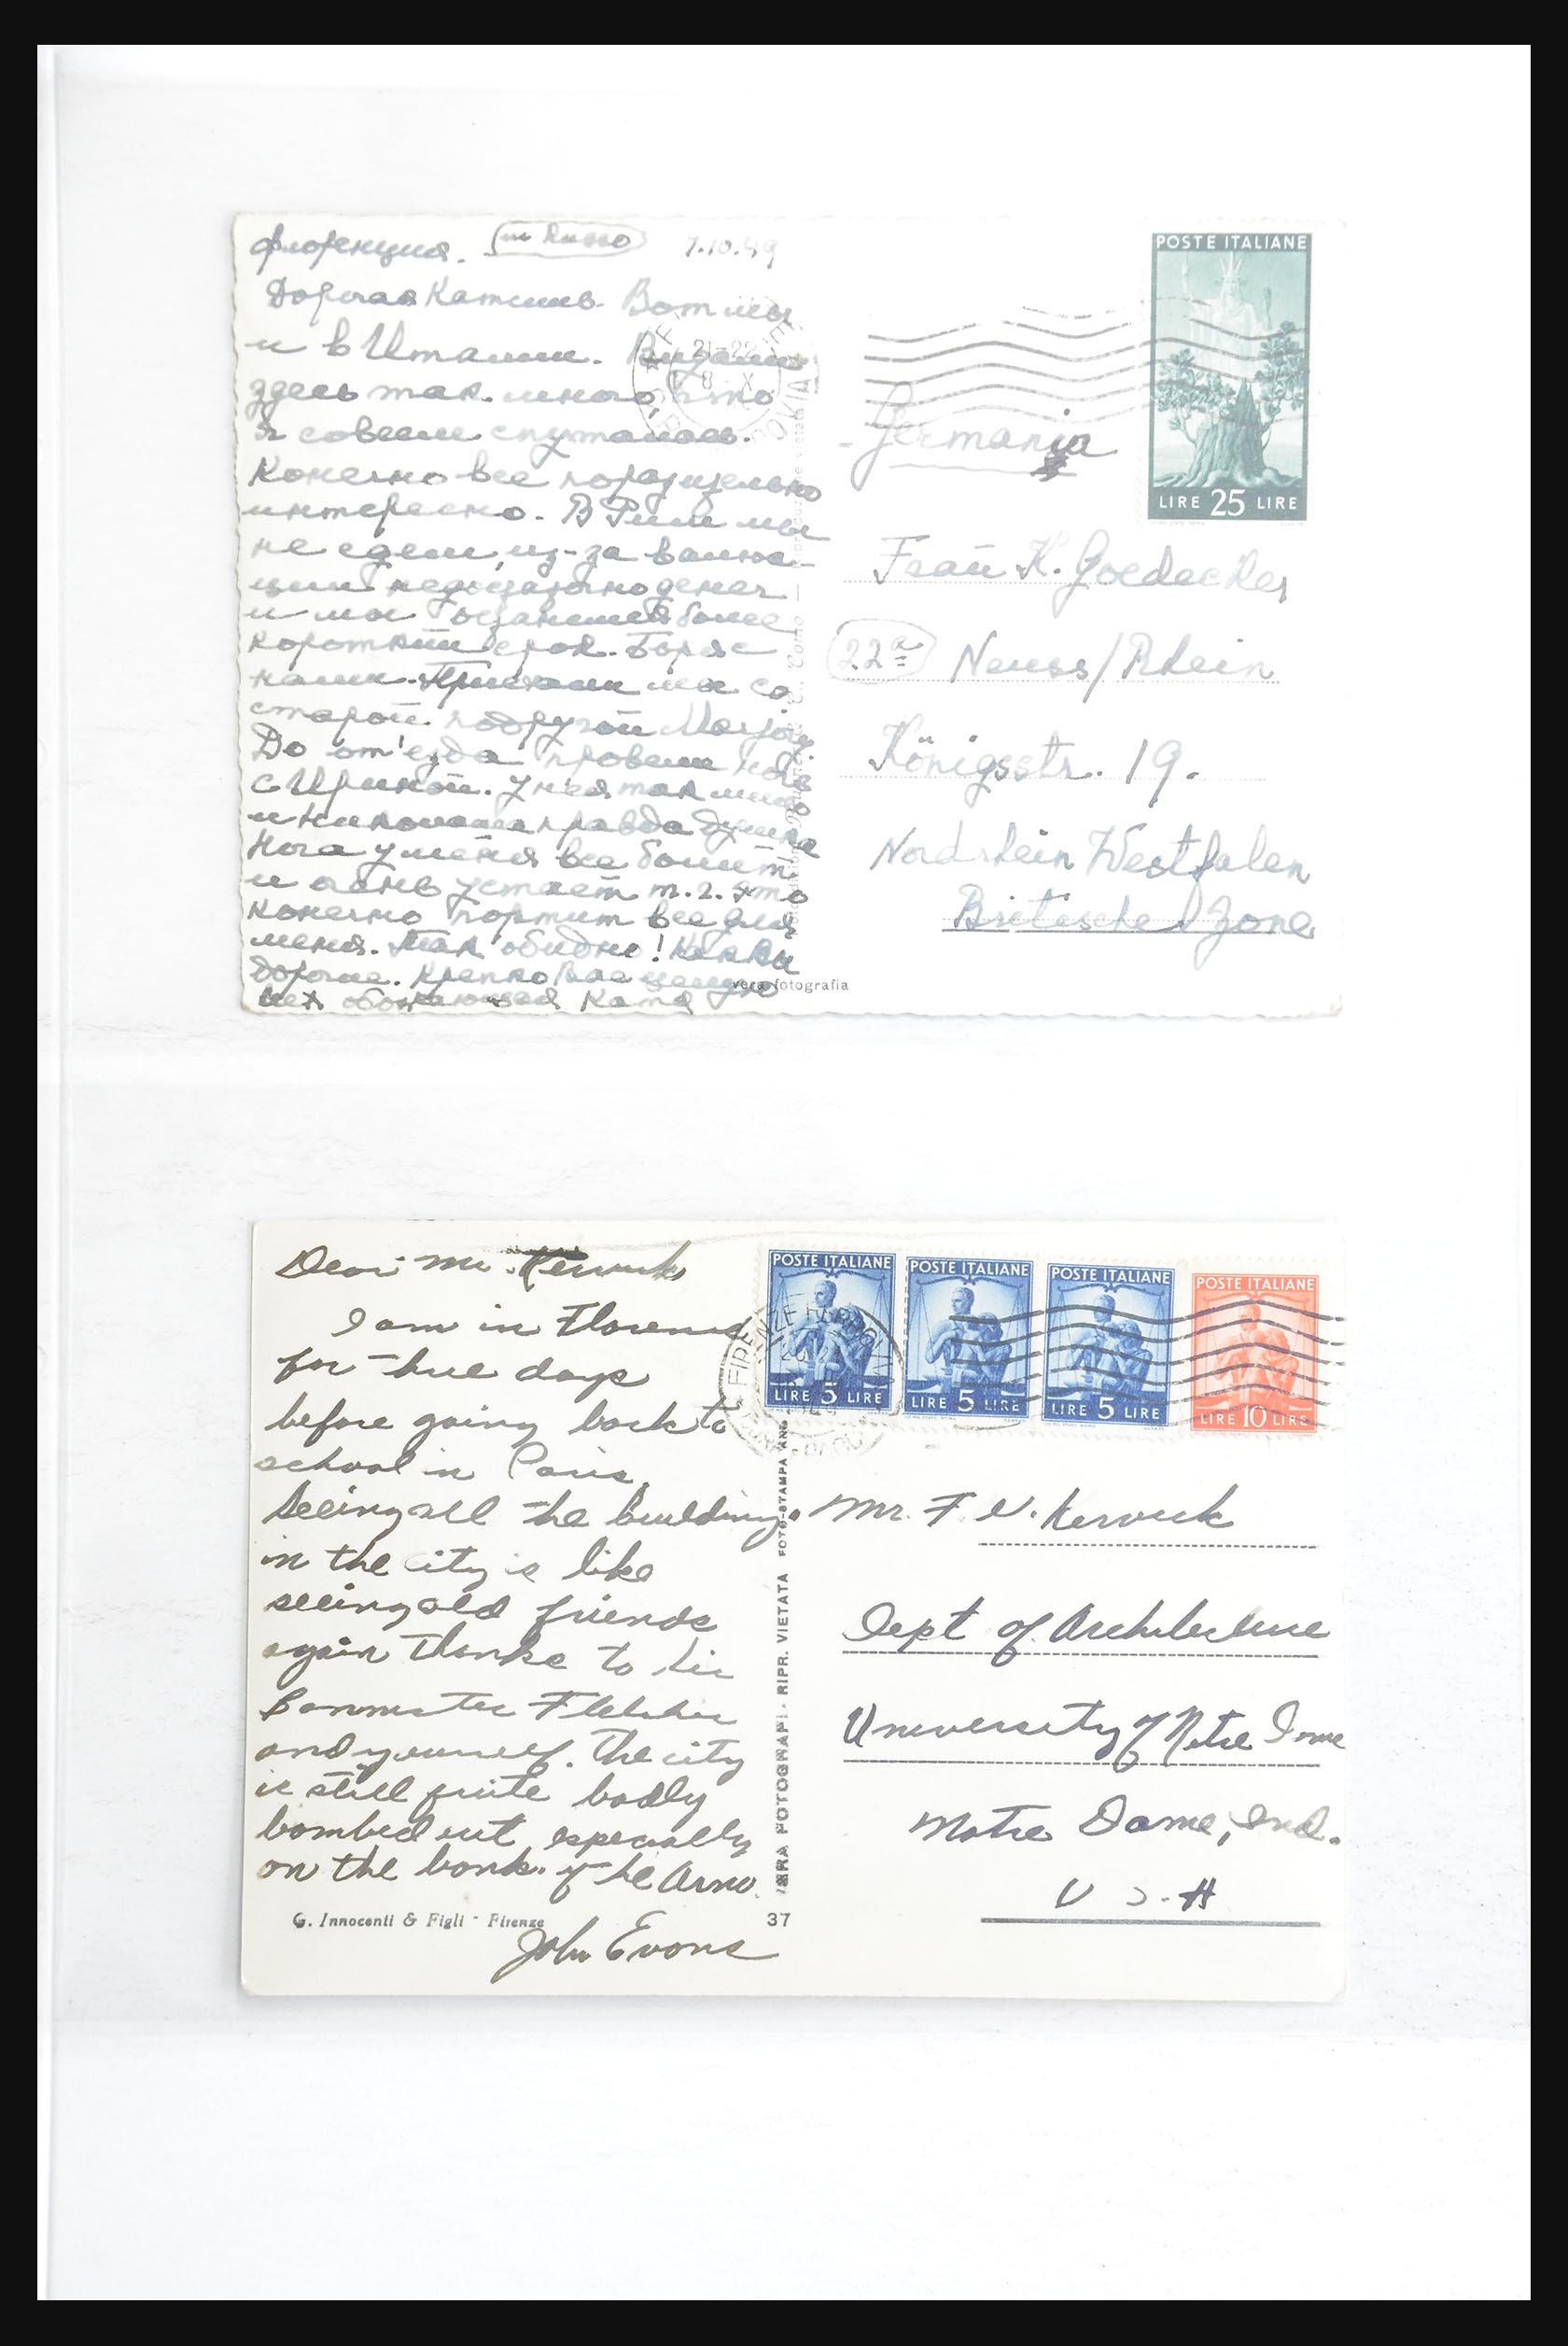 Флоренция. in Russo 7.10.49
Дорогая Катишь. Вот мы
и в Италии. Видали
здесь так много, что
я совсем спуталась.
Конечно все поразительно
интересно. В Рим мы
не едем, из-за
недостаточно денег
и мы более
короткий срок. Боря с
нами. Приехали мы со
старой подругой
До от'езда провели
с Ириной. У нея так мило
и правда душка
Нога у меня все болит
и очень устает т.ч. это
конечно портит все для
меня. Так обидно!
дорогие. Крепко Вас целую
Вас обожающая Катя
POSTE ITALIANE
LIRE 25 LIRE
21-22
8 X
Germania
Frau K. Goedecker
22a Neuss/Rhein
Königsstr. 19.
Nordrhein Westfalen
Britische Zone
vera fotografia
Dear Mr. Kervick
I am in Florence
for three days
before going back to
school in Paris.
Seeing all the buildings
in the city is like
seeing old friends
again thanks to Sir
Bannister Fletcher
and yourself. The city
is still quite badly
bombed out especially
on the bank of the Arno.
John Evans
G. Innocenti & Figli - Firenze
37
VERA FOTOGRAFI - RIPR. VIETATA FOTO-STAMPA ANG
POSTE ITALIANE
LIRE 5 LIRE
POSTE ITALIANE
LIRE 5 LIRE
POSTE ITALIANE
LIRE 5 LIRE
POSTE ITALIANE
LIRE 10 LIRE
FIRENZE FERROVIA
Mr. F. W. Kervick
Dept of Architecture
University of Notre Dame
Notre Dame, Ind.
U S.A